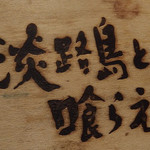 淡路島と
喰らえ